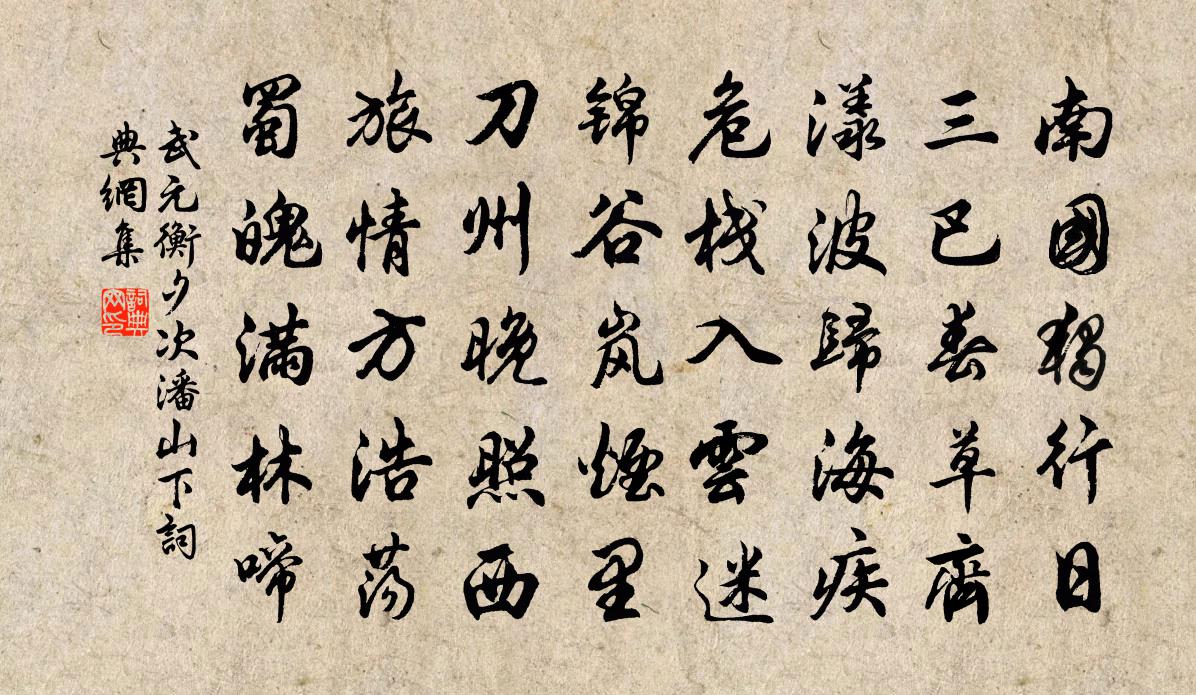 南國獨行日
三巴春草齊
漾波歸海疾
危棧入雲迷
锦谷岚煙里
刀州晚照西
旅情方浩荡
蜀魄满林啼
武元衡夕次潘山下詞
典網集
詞典
网印